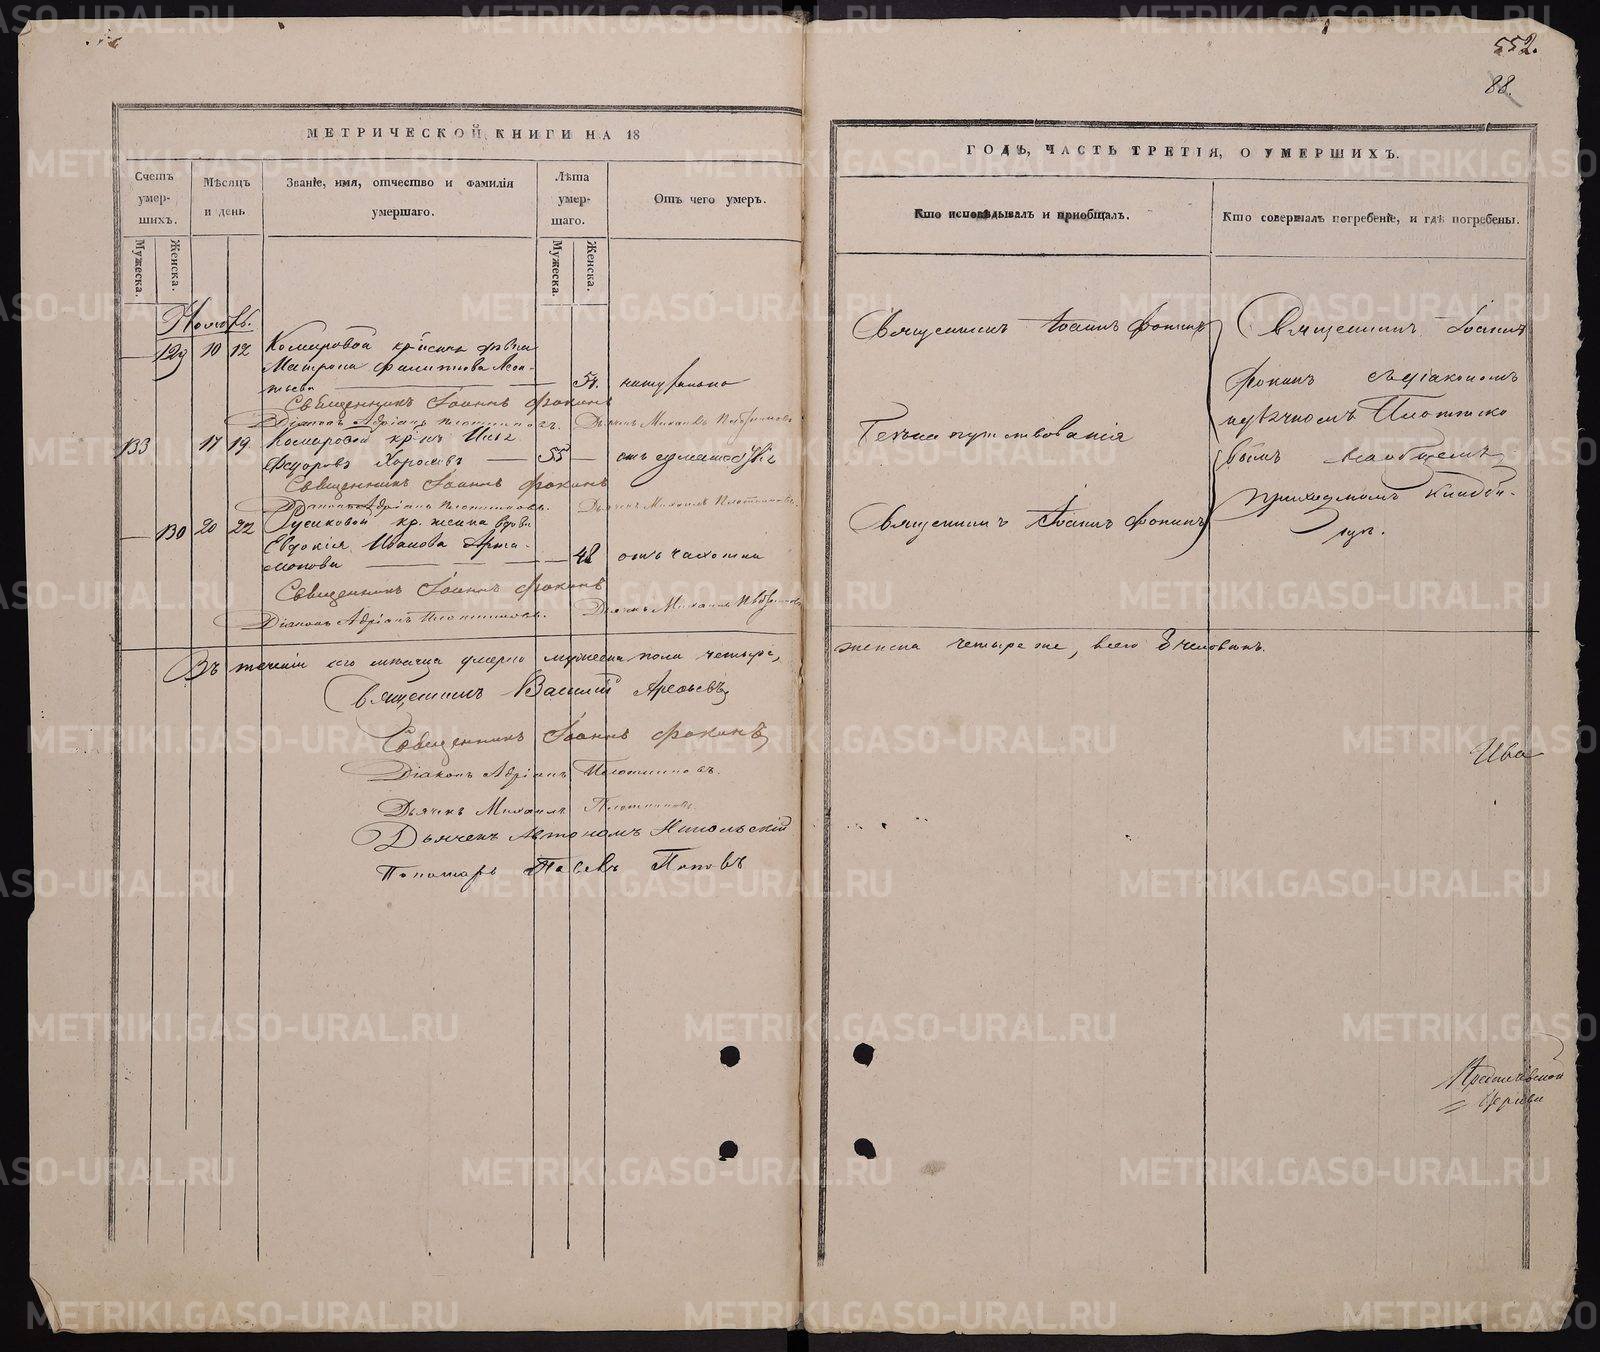 552.
88.
МЕТРИЧЕСКОЙ КНИГИ НА 18
ГОДЪ, ЧАСТЬ ТРЕТІЯ, О УМЕРШИХЪ.
Счетъ умер-шихъ.
Мѣсяцъ и день
Званіе, имя, отчество и фамилія умершаго.
Лѣта умер-шаго.
Отъ чего умеръ.
Кто исповѣдывалъ и приобщалъ.
Кто совершалъ погребеніе, и гдѣ погребены.
Мужеска.
Женска.
Мужеска.
Женска.
Ноябрь.
129 10 12 Комаровой
Матрона Филиппова Леон-
тьева — 54. натурально
Священникъ Іоаннъ Фокинъ
Діаконъ Адріанъ Плотниковъ. Дьячекъ Михаилъ Плотниковъ
133 17 19 Комаровой кр-нъ
Федоровъ — 55 — отъ
Священникъ Іоаннъ Фокинъ
Діаконъ Адріанъ Плотниковъ. Дьячекъ Михаилъ Плотниковъ.
130 20 22 кр. жена вдова
Евдокія Иванова Арта-
монова — 48 отъ чахотки
Священникъ Іоаннъ Фокинъ
Діаконъ Адріанъ Плотниковъ. Дьячекъ Михаилъ Плотниковъ
Священникъ Іоаннъ Фокинъ
Безъ напутствованія
Священникъ Іоаннъ Фокинъ
Священникъ Іоаннъ
Фокинъ съ діакономъ
Плотнико
вымъ на общемъ
приходскомъ кладби-
щѣ.
Въ теченіи сего мѣсяца умерло мужеска пола четыре,
женска четыре же, всего 8 человѣкъ.
Священникъ Василій Арефьевъ
Священникъ Іоаннъ Фокинъ
Діаконъ Адріанъ Плотниковъ.
Дьячекъ Михаилъ Плотниковъ.
Дьячекъ Автономъ Никольскій
Пономарь Попоъ
Ива
церкви
METRIKI.GASO-URAL.RU